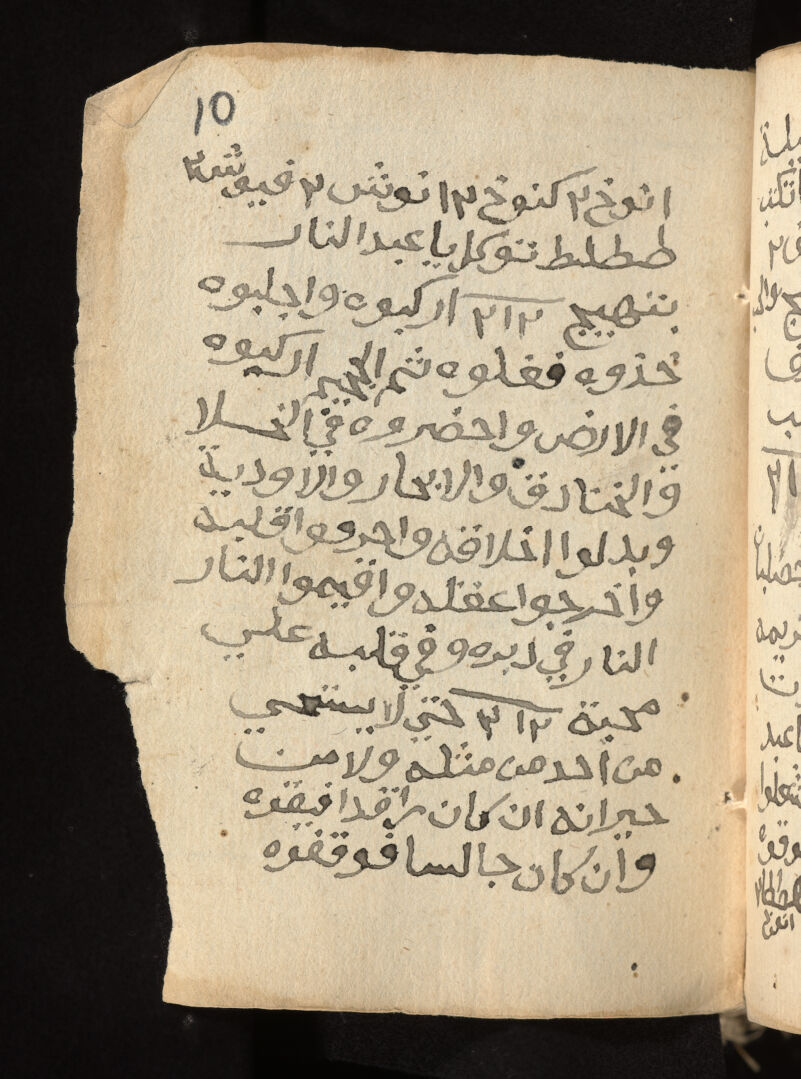 10
انوخ ٢ كنوخ ٢ انوش ٢ فيوش ٢
ططلط تتوكل يا عبد النار
بتهييج ٢١٢ اركبوه واجلبوه
خذوه فغلوه ثم الجحيم اركبوه
في الارض واحضروه في الخلا
والخنادق والابحار والاودية
وبدلوا اخلاقه واحرقوا قلبه
واخرجوا عقله واقيموا النار
النار في دبره وفي قلبه علي
محبة ٢١٢ حتي لا يستحي
من احد من مثله ولا من
جيرانه ان كان راقدا فيقوه
وان كان جالسا فوقفوه